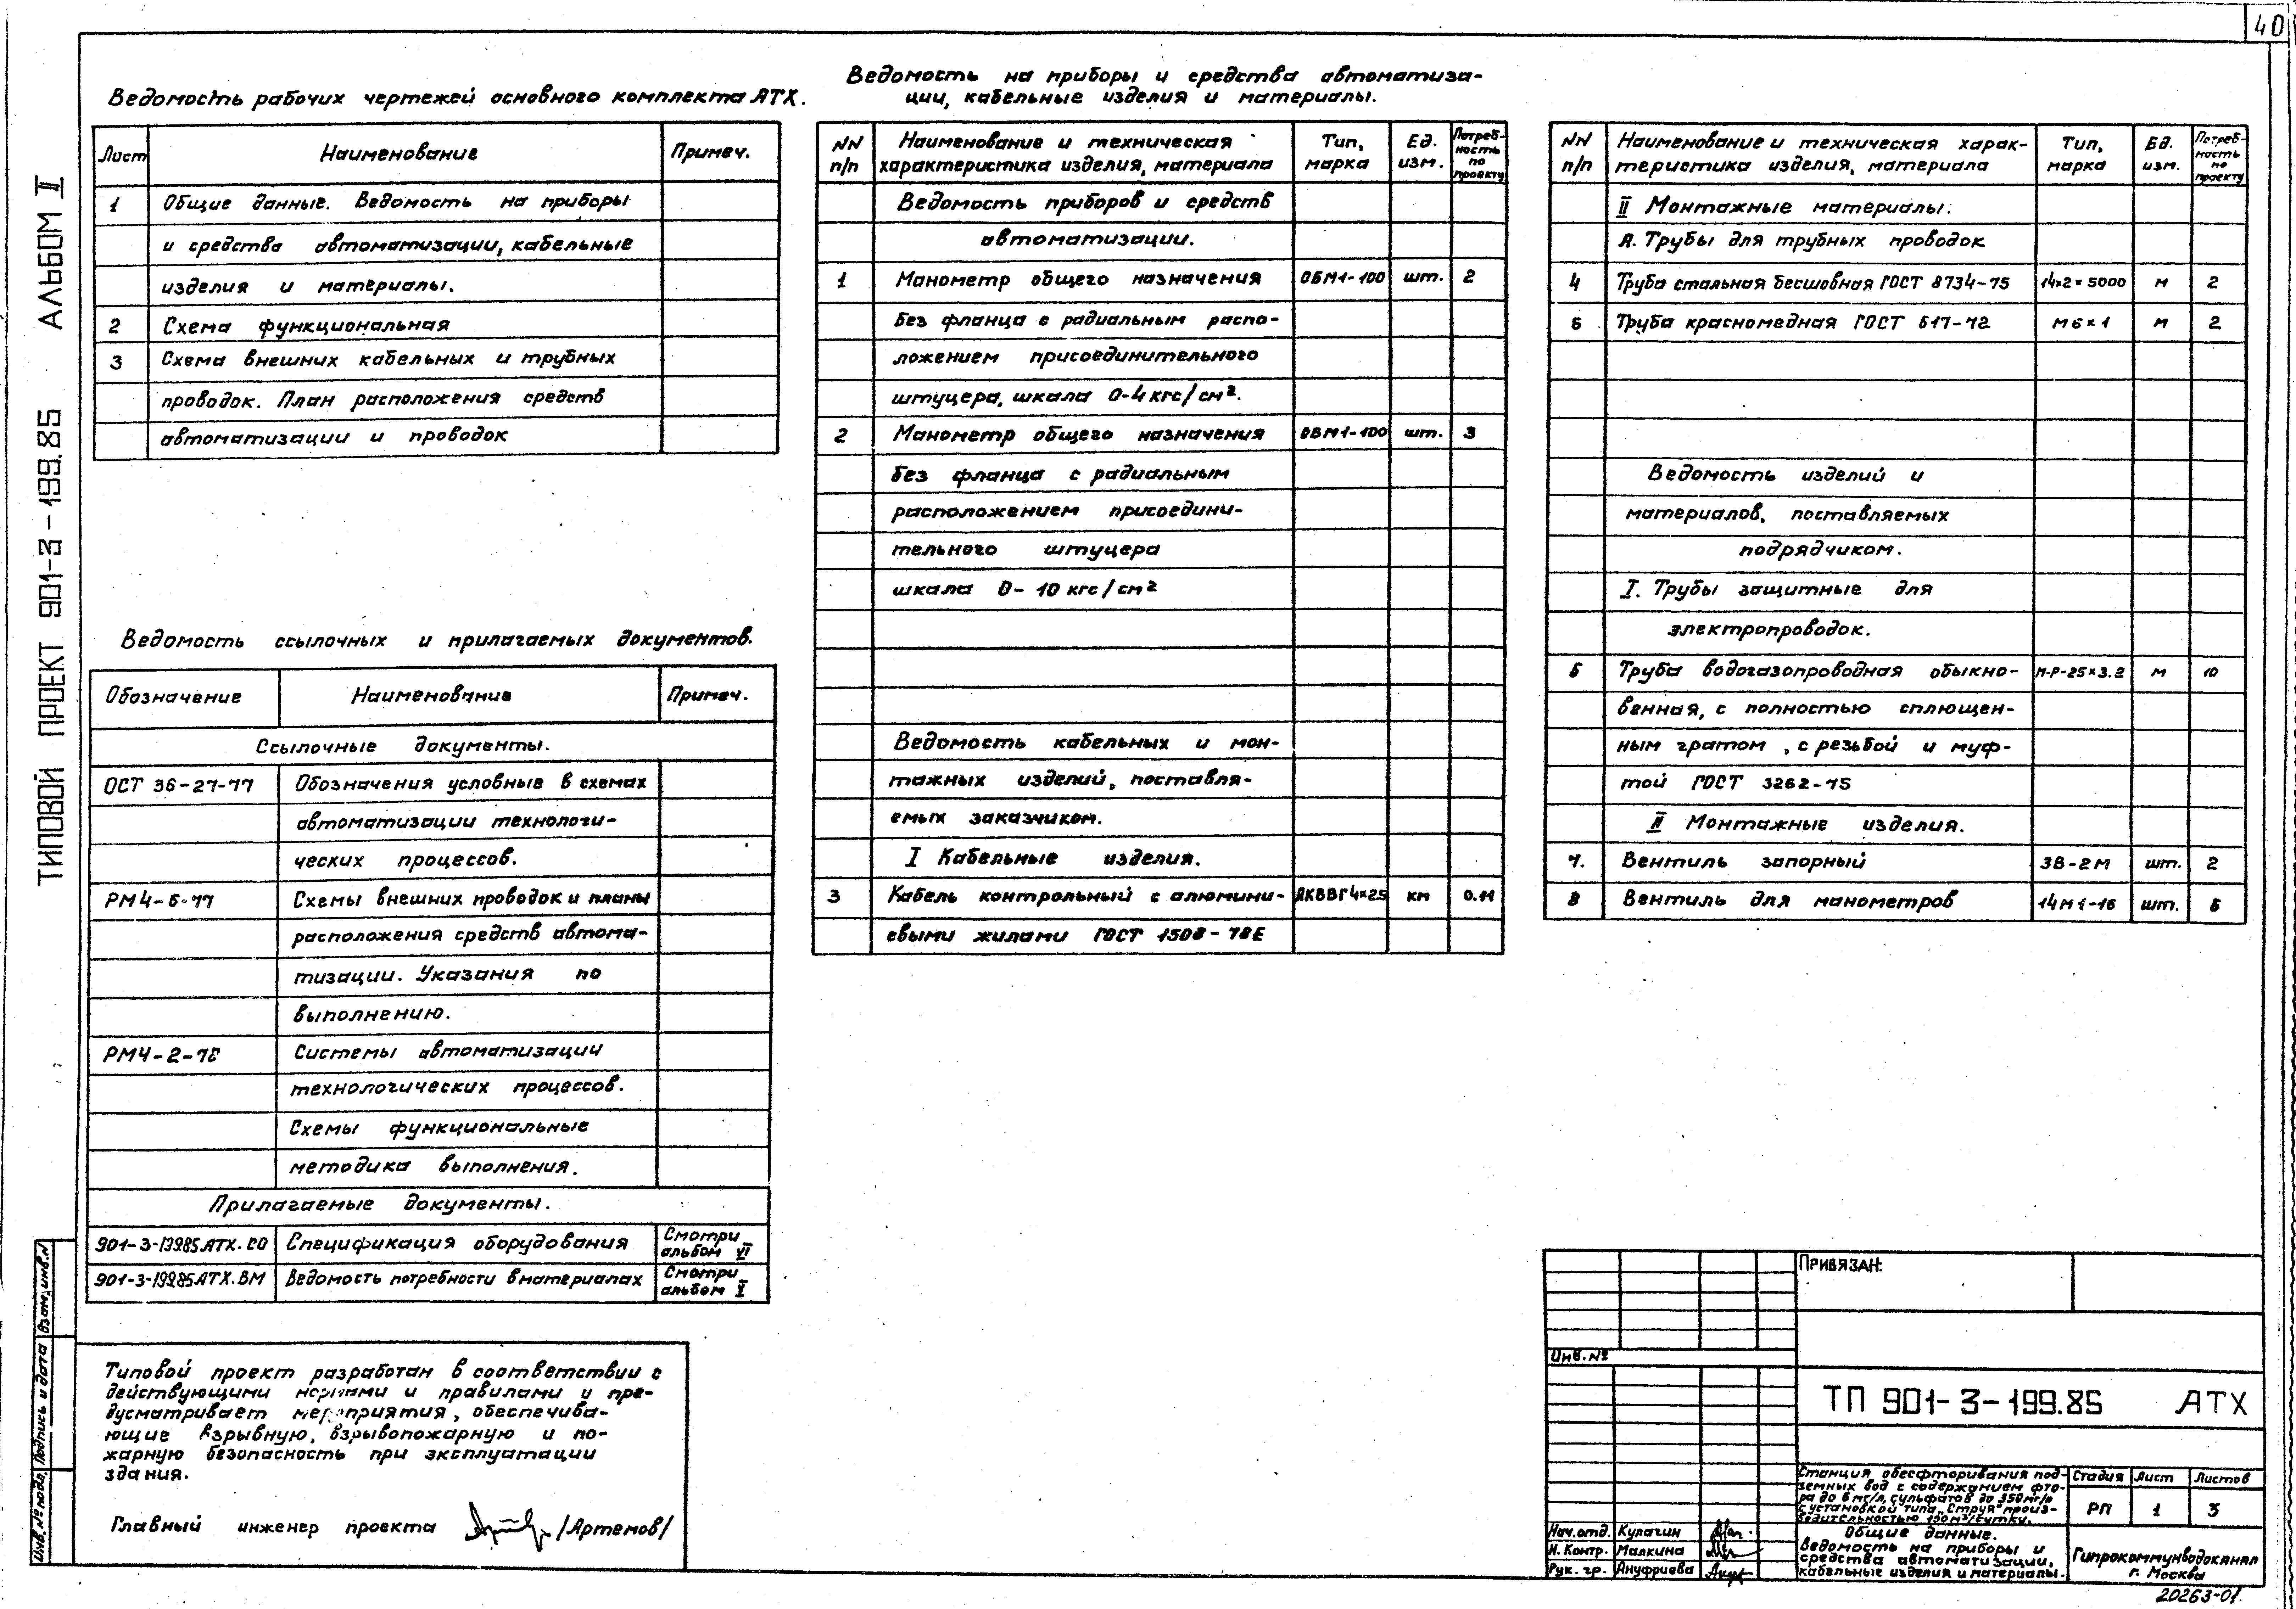 40
ТИПОВОЙ ПРОЕКТ 901-3-199.85 АЛЬБОМ II
Ведомость рабочих чертежей основного комплекта АТХ.
Лист Наименование Примеч.
1 Общие данные. Ведомость на приборы
и средства автоматизации, кабельные
изделия и материалы.
2 Схема функциональная
3 Схема внешних кабельных и трубных
проводок. План расположения средств
автоматизации и проводок
Ведомость ссылочных и прилагаемых документов.
Обозначение Наименование Примеч.
Ссылочные документы.
ОСТ 36-27-77 Обозначения условные в схемах
автоматизации технологи-
ческих процессов.
РМ4-6-77 Схемы внешних проводок и планы
расположения средств автома-
тизации. Указания по
выполнению.
РМ4-2-78 Системы автоматизации
технологических процессов.
Схемы функциональные
методика выполнения.
Прилагаемые документы.
901-3-199.85.АТХ.СО Спецификация оборудования Смотри
альбом VI
901-3-199.85АТХ.ВМ Ведомость потребности в материалах Смотри
альбом V
Типовой проект разработан в соответствии с
действующими нормами и правилами и пре-
дусматривает мероприятия, обеспечива-
ющие взрывную, взрывопожарную и по-
жарную безопасность при эксплуатации
здания.
Главный инженер проекта /Артемов/
Ведомость на приборы и средства автоматиза-
ции, кабельные изделия и материалы.
NN Наименование и техническая Тип, Ед. Потреб-
п/п характеристика изделия, материала марка изм. ность
по
проекту
Ведомость приборов и средств
автоматизации.
1 Манометр общего назначения ОБМ1-100 шт. 2
без фланца с радиальным распо-
ложением присоединительного
штуцера, шкала 0-4 кгс/см².
2 Манометр общего назначения ОБМ1-100 шт. 3
без фланца с радиальным
расположением присоедини-
тельного штуцера
шкала 0-10 кгс/см²
Ведомость кабельных и мон-
тажных изделий, поставля-
емых заказчиком.
I Кабельные изделия.
3 Кабель контрольный с алюмини- АКВВГ4×2.5 км 0.11
евыми жилами ГОСТ 1508-78Е
NN Наименование и техническая харак- Тип, Ед. Потреб-
п/п теристика изделия, материала марка изм. ность
по
проекту
II Монтажные материалы.
А. Трубы для трубных проводок
4 Труба стальная бесшовная ГОСТ 8734-75 14×2×5000 м 2
5 Труба красномедная ГОСТ 617-72 М6×1 м 2
Ведомость изделий и
материалов, поставляемых
подрядчиком.
I. Трубы защитные для
электропроводок.
6 Труба водогазопроводная обыкно- М-Р-25×3.2 м 10
венная, с полностью сплющен-
ным гратом, с резьбой и муф-
той ГОСТ 3262-75
II Монтажные изделия.
7. Вентиль запорный ЗВ-2М шт. 2
8 Вентиль для манометров 14М1-16 шт.
Привязан:
Инв.№
ТП 901-3-199.85 АТХ
Станция обесфторивания под-
земных вод с содержанием фто-
ра до 6 мг/л, сульфатов до 350мг/л
с установкой типа „Струя" произ-
водительностью м³/сутки.
Стадия Лист Листов
РП 1 3
Нач.отд. Кулагин
Н. Контр. Малкина
Рук. гр. Ануфриева
Общие данные.
Ведомость на приборы и
средства автоматизации,
кабельные изделия и материалы.
Гипрокоммунводоканал
г. Москва
20263-01
Инв.№ подл. Подпись и дата Взам.инв.N